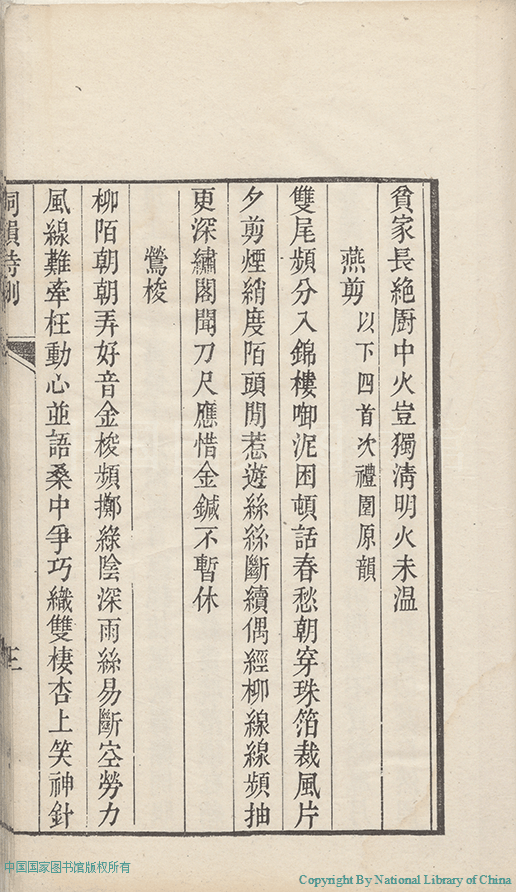 貧家長絶厨中火豈獨淸明火未温
燕剪以下四首次禮圍原韻
雙尾頻分入錦樓啣泥困頓話春愁朝穿珠箔裁風片
夕剪煙綃度陌頭閒惹遊絲絲斷續偶經柳線線頻抽
更深繡閣聞刀尺應惜金鍼不暫休
鶯梭
柳陌朝朝弄好音金梭頻擲綠陰深雨絲易斷空勞力
風線難牽枉動心並語桑中爭巧織雙棲杏上笑神針
詞韻詩刪
三
中国国家图书馆版权所有
Copyright By National Library of China